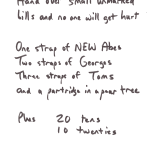 Hand over small unmarked
bills and no one will get hurt
One strap of NEW Abes
Two straps of Georges
Three straps of Toms
and a partridge in a pear tree
Plus 20 tens
10 twenties